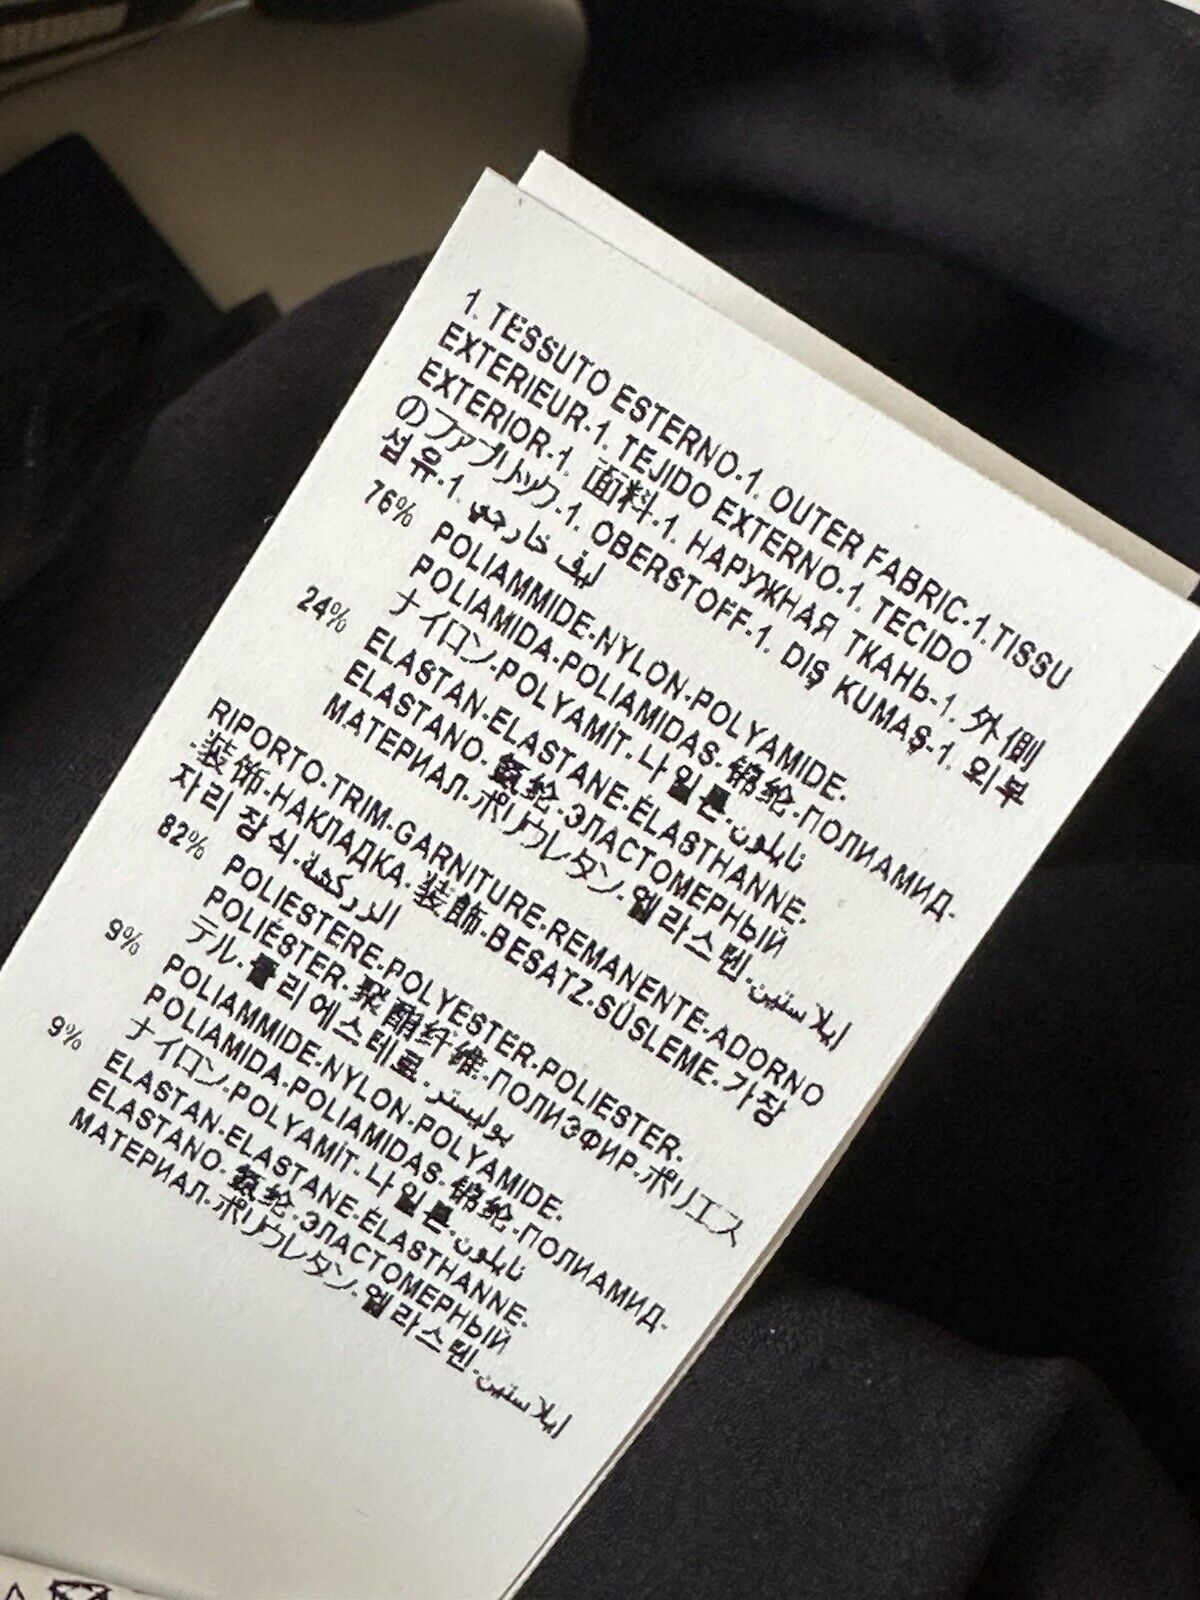 1. TESSUTO ESTERNO-1. OUTER FABRIC-1.TISSU
EXTERIEUR-1. TEJIDO EXTERNO-1. TECIDO
EXTERIOR-1. 面料-1. НАРУЖНАЯ ТКАНЬ-1. 外側
のファブリック-1. OBERSTOFF-1. DIŞ KUMAŞ-1. 외부
섬유-1. ليف خارجي
76% POLIAMMIDE-NYLON-POLYAMIDE-
POLIAMIDA-POLIAMIDAS-锦纶-ПОЛИАМИД-
ナイロン-POLYAMİT-나일론-نايلون
24% ELASTAN-ELASTANE-ÉLASTHANNE-
ELASTANO-氨纶-ЭЛАСТОМЕРНЫЙ
МАТЕРИАЛ-ポリウレタン-엘라스텐-ايلاستين
RIPORTO-TRIM-GARNITURE-REMANENTE-ADORNO
-装饰-НАКЛАДКА-装飾-BESATZ-SÜSLEME-가장
자리 장식-الزركشة
82% POLIESTERE-POLYESTER-POLIESTER-
POLIÉSTER-聚酯纤维-ПОЛИЭФИР-ポリエス
テル-폴리에스테르-بوليستر
9% POLIAMMIDE-NYLON-POLYAMIDE-
POLIAMIDA-POLIAMIDAS-锦纶-ПОЛИАМИД-
ナイロン-POLYAMİT-나일론-نايلون
9% ELASTAN-ELASTANE-ÉLASTHANNE-
ELASTANO-氨纶-ЭЛАСТОМЕРНЫЙ
МАТЕРИАЛ-ポリウレタン-엘라스텐-ايلاستين